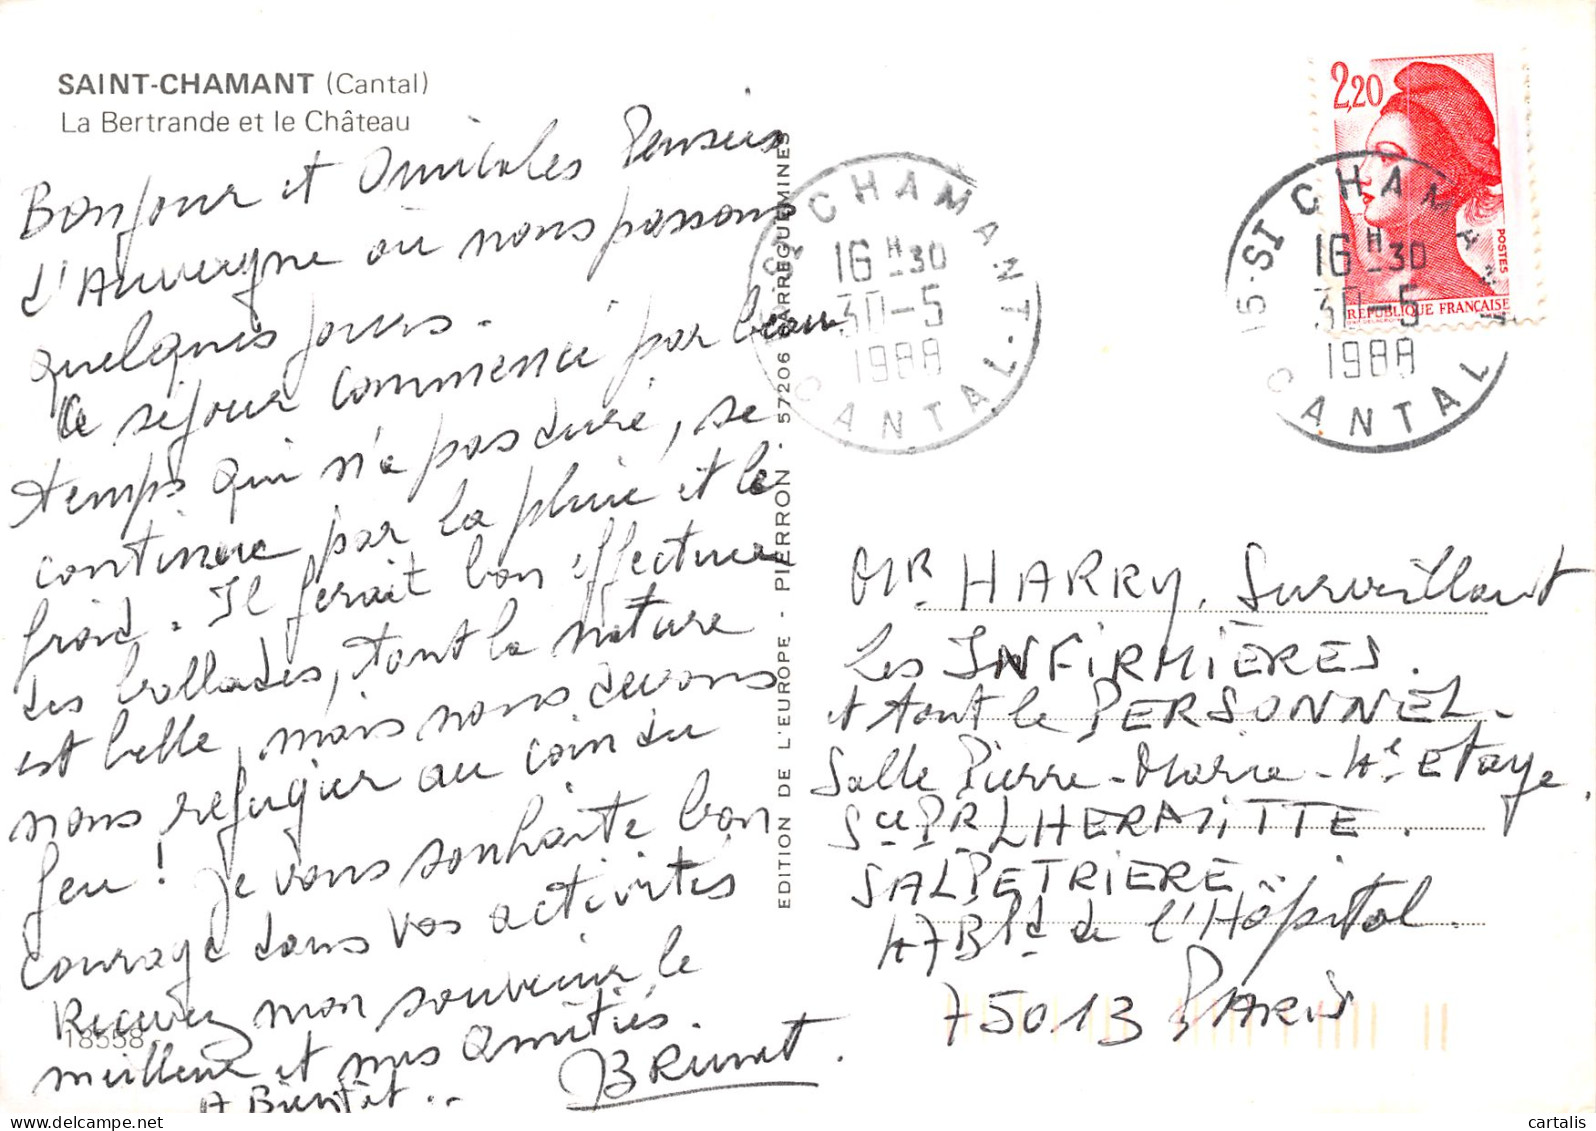 SAINT-CHAMANT (Cantal)
La Bertrande et le Château
Bonjour et Amicales Pensées
d'Auvergne où nous passons
quelques jours.
Ce séjour commencé par beau
temps qui n'a pas duré, se
continue par la pluie et le
froid. Il ferait bon effectuer
des ballades, tant la nature
est belle, mais nous devons
nous refugier au coin du
feu ! Je vous souhaite bon
courage dans vos activités
Recevez mon souvenir le
meilleur et mes Amitiés.
A Bientôt..
JBRunet.
18558
EDITION DE L'EUROPE - PIERRON - 57206 SARREGUEMINES
15 ST CHAMANT
16 H 30
30-5
1988
CANTAL
2,20
POSTES
REPUBLIQUE FRANÇAISE
15 - ST CHAMANT
16 H 30
30-5
1988
CANTAL
Mr HARRY, Surveillant
Les INFIRMIÈRES.
et tout le PERSONNEL.
Salle Pierre-Marie-4e Etage,
Sce PR LHERMITTE.
SALPETRIERE
47 Bld de l'Hôpital.
75013 PARIS
cartalis
www.delcampe.net